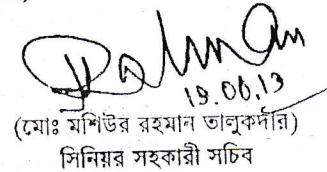 Rahman
19.06.13
(মোঃ মশিউর রহমান তালুকদার)
সিনিয়র সহকারী সচিব